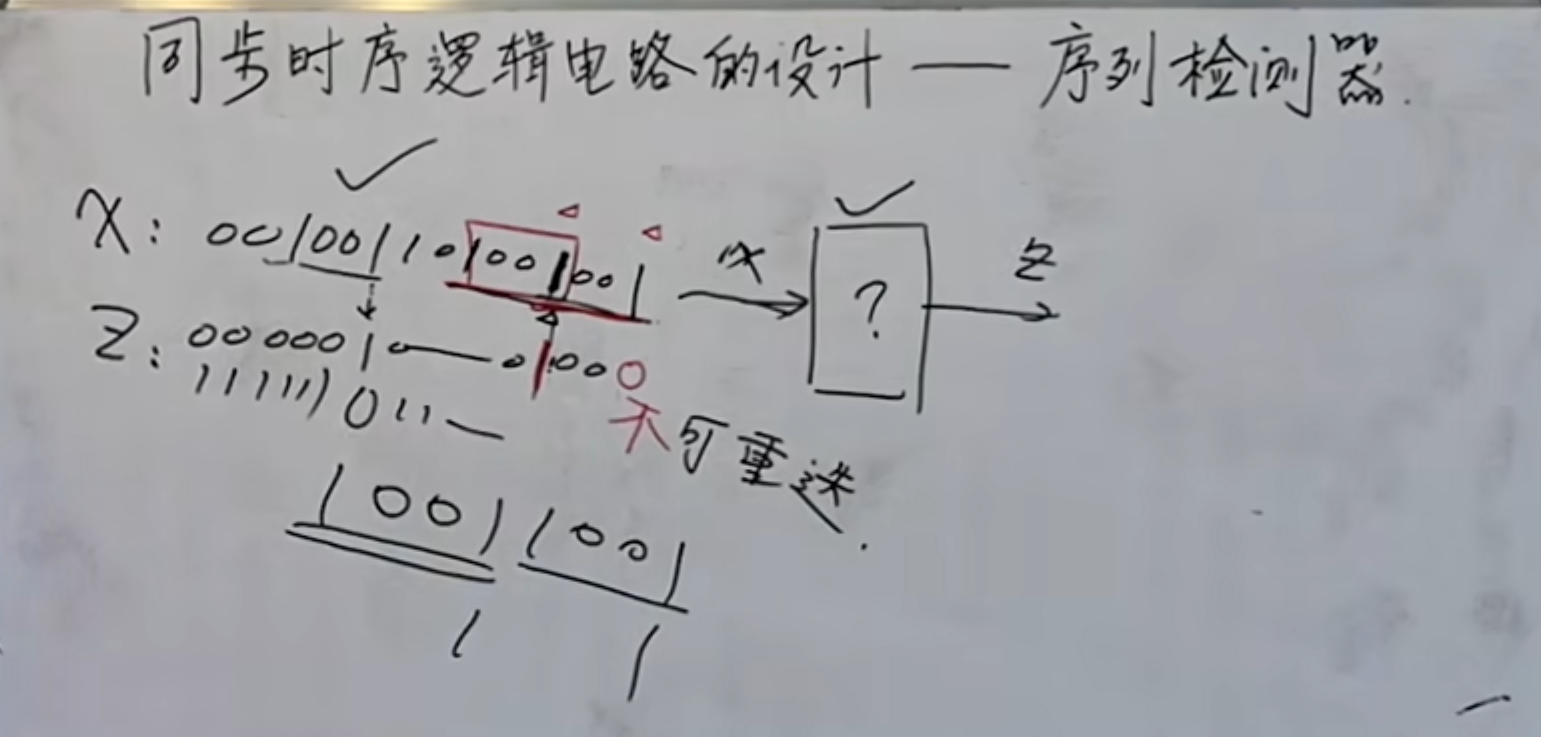 同步时序逻辑电路的设计 — 序列检测器.
X: 001001101001001 x → ? → Z
Z: 0000010—01000
111111011—
不可重迭.
10011001
1 1